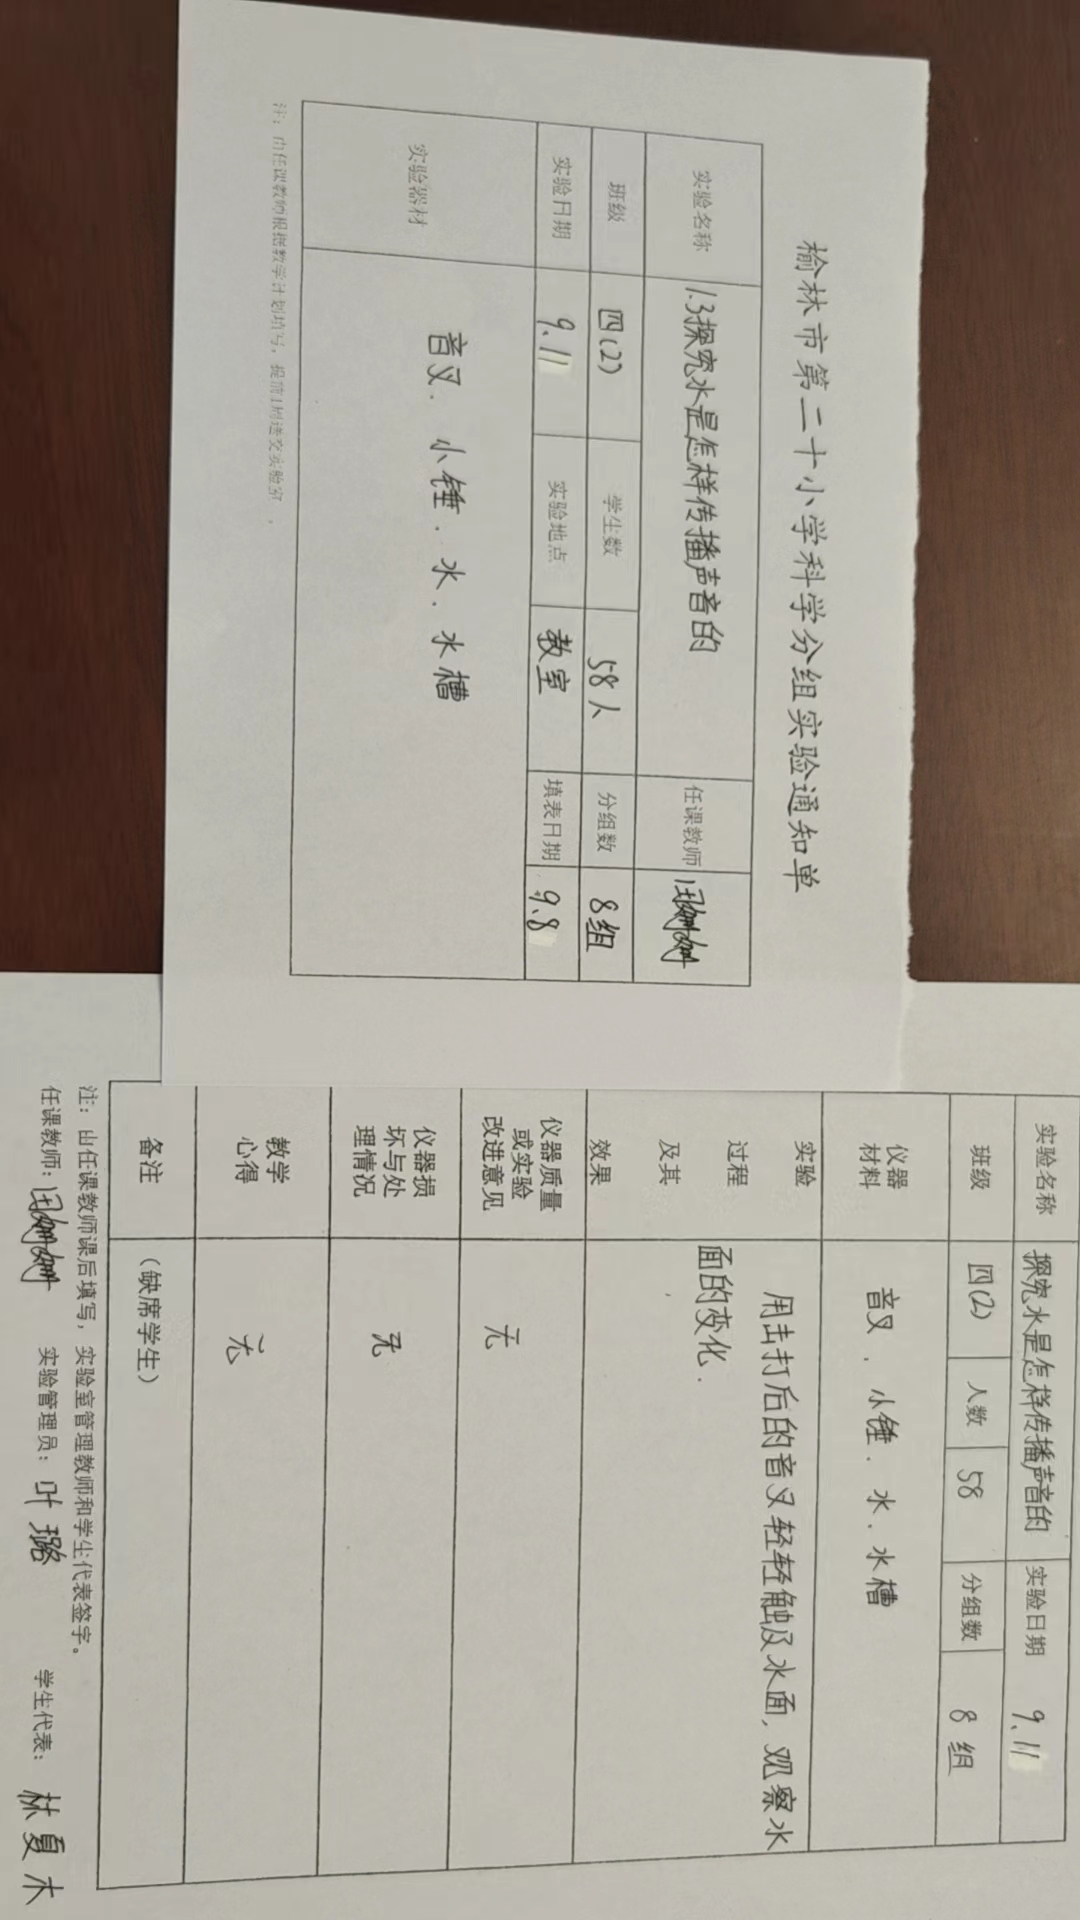 榆林市第二十小学科学分组实验通知单
实验名称 1.3探究水是怎样传播声音的 任课教师
班级 四(2) 学生数 58人 分组数 8组
实验日期 9.11 实验地点 教室 填表日期 9.8
实验器材 音叉．小锤．水．水槽
注：由任课教师根据教学计划填写，提前1周送交实验室．
实验名称 探究水是怎样传播声音的 实验日期 9.11
班级 四(2) 人数 58 分组数 8组
仪器材料 音叉．小锤．水．水槽
实验过程及其效果 用击打后的音叉轻轻触及水面，观察水
面的变化．
仪器质量或实验改进意见 无
仪器损坏与处理情况 无
教学心得 无
备注 （缺席学生）
注：由任课教师课后填写，实验室管理教师和学生代表签字。
任课教师： 实验管理员：叶璐 学生代表：林夏木